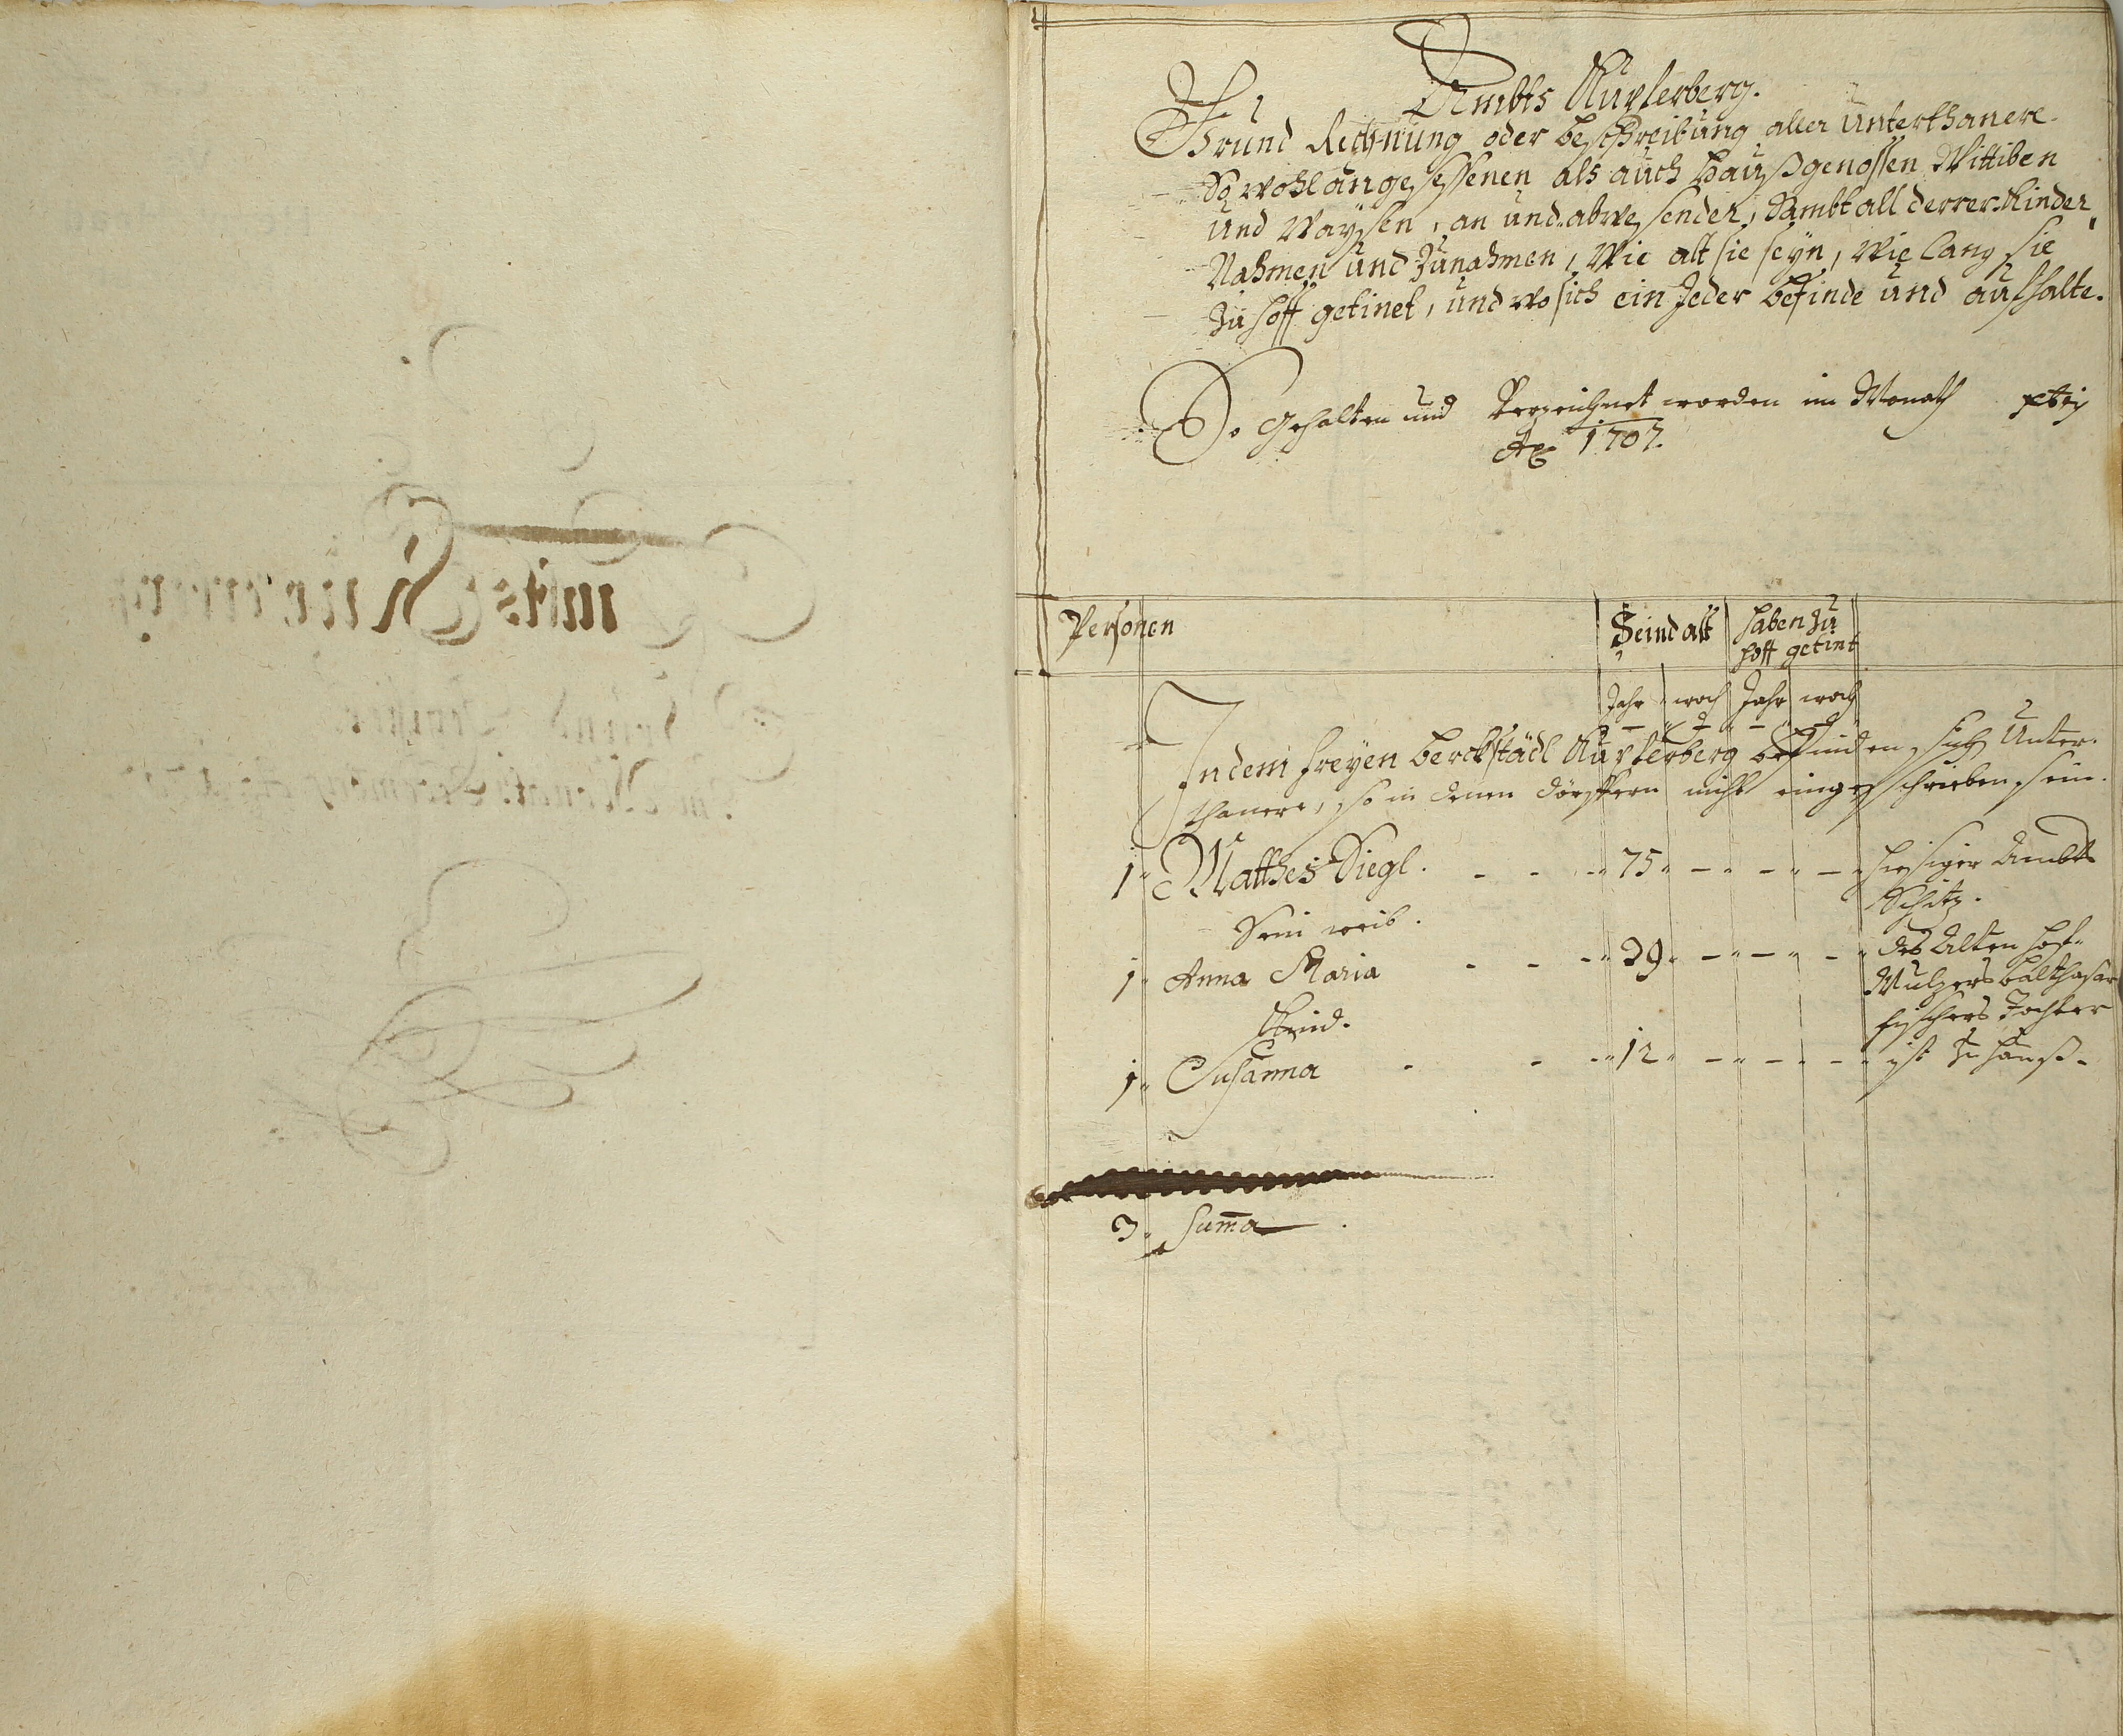 Ambts Kupferberg.
Grund Rechnung oder beschreibung aller Unterthanere
So wohl angesessenen als auch Haußgenossen Wittiben
und Waysen, an und abwesender, Sambt all derrer Kinder
Nahmen und Zunahmen, Wie alt sie seyn, Wie lang sie
Zu hoff getinet, und wo sich ein Jeder befinde und aufhalte.
So gehalten und Verzeichnet worden im Monath xbrj
Ao 1707.
Personen Seind alt haben Zu
hoff getint
Jahr woch Jahr woch
In dem freyen berckstädl Kupferberg befinden sich Unter-
thanere, so in denen dörffern nicht eingeschrieben sein.
1 Matthes Siegl. 75 hiesiger Ambts
Schitz.
Sein weib.
1 Anna Maria 39 des Alten hof-
Mulzers Balthasar
fischers Tochter
Kind.
1 Susanna 12 ist Zu hauß.
3 Suma